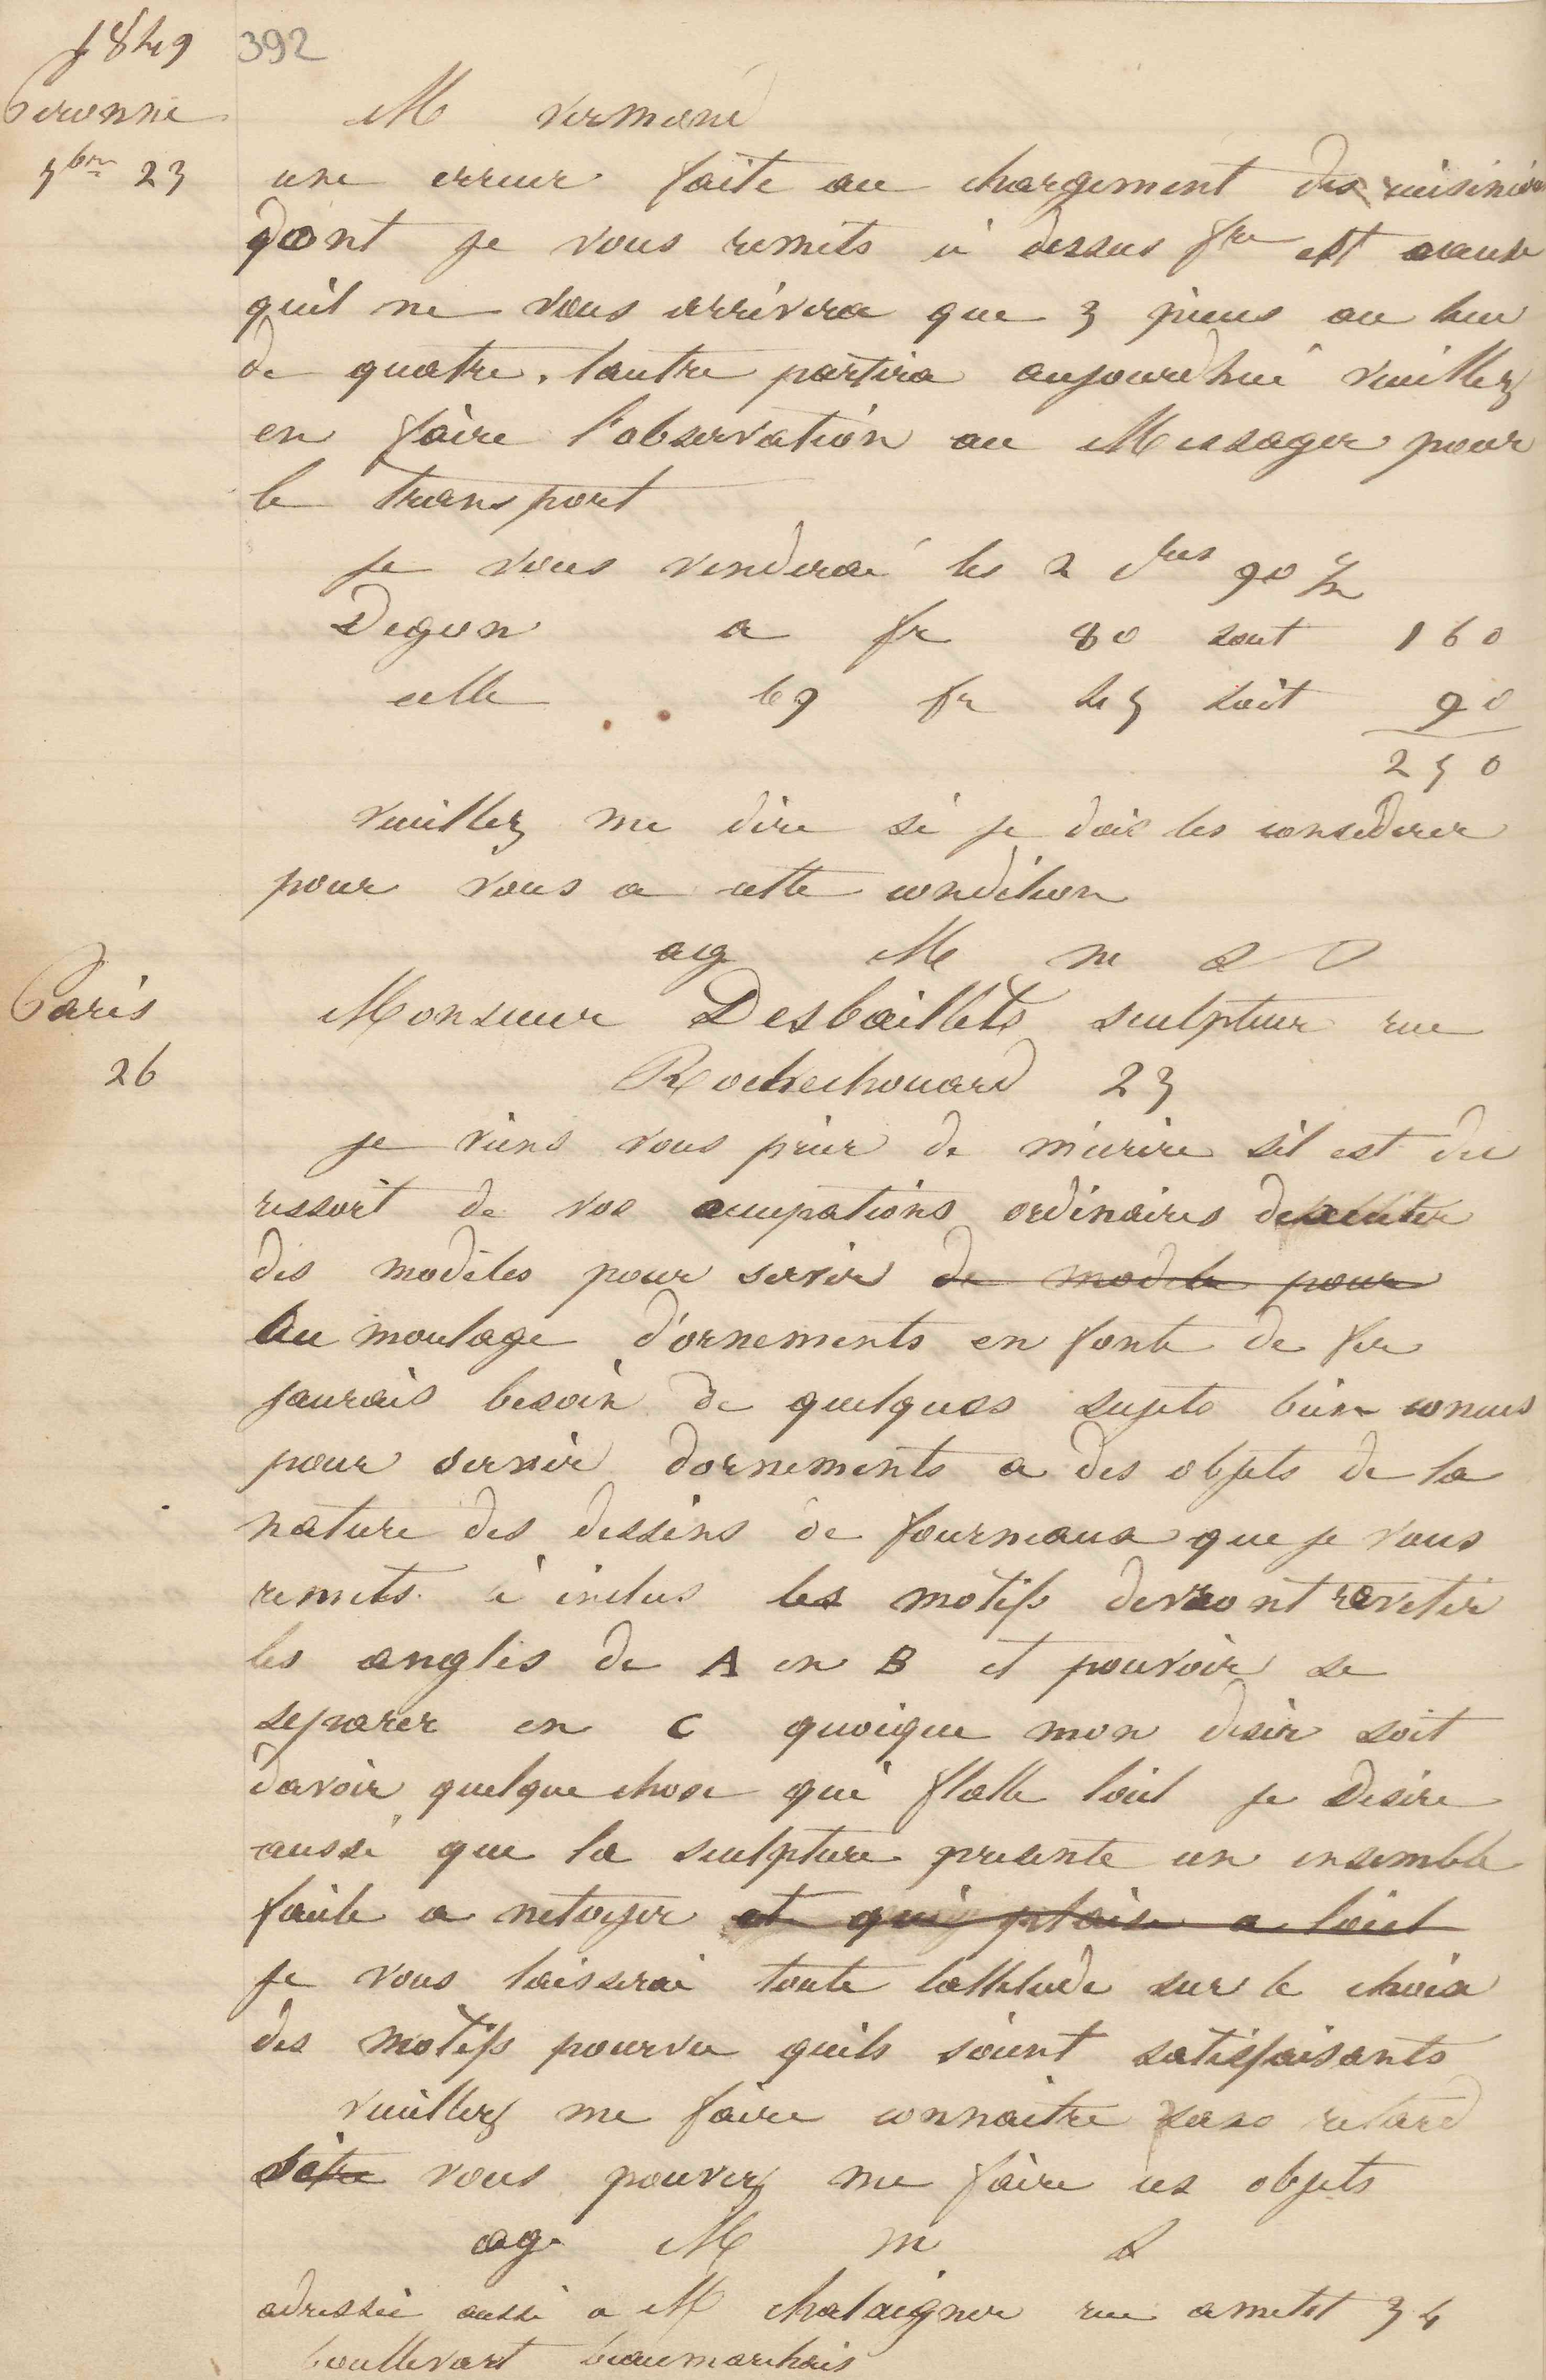 1849 392
Peronne M vermand
9bre 23 une erreur faite au chargement des cuisinieres
dont je vous remets ci dessus fre est cause
quil ne vous arrivera que 3 pieces au lieu
de quatre. lautre partira aujourdhui veuillez
en faire l'observation au Messager pour
le transport
je vous venderai les 2 dres 90 c/m
Degon a fr 80 sout 160
celle 69 fr 45 soit 90
250
veuillez me dire si je dois les considerer
pour vous a cette condition
ag M m s D
Paris Monsieur Desbaillets sculpteur rue
26 Rochechouard 23
je viens vous prier de m'ecrire sil est du
ressort de vos ocupations ordinaires dexecuter
des modeles pour servir de modele pour
au moulage d'ornements en fonte de fer
jaurais besoin de quelques sujets bien concus
pour servir dornements a des objets de la
nature des dessins de fourneaux que je vous
remets ci inclus les motifs devront revetir
les angles de A en B et pouvoir se
separer en C quoique mon desir soit
davoir quelque chose qui flatte loeil je desire
aussi que la sculpture presente un ensemble
facile a netoyer et qui plaise a loeil
je vous laisserai toute lattitude sur le choix
des motifs pourvu quils soient satisfaisants
veuillez me faire connaitre sans retard
si vous pouvez me faire ces objets
ag. M m s
adressée aussi a M chataigner rue amelot 34
boullevart beaumarchais